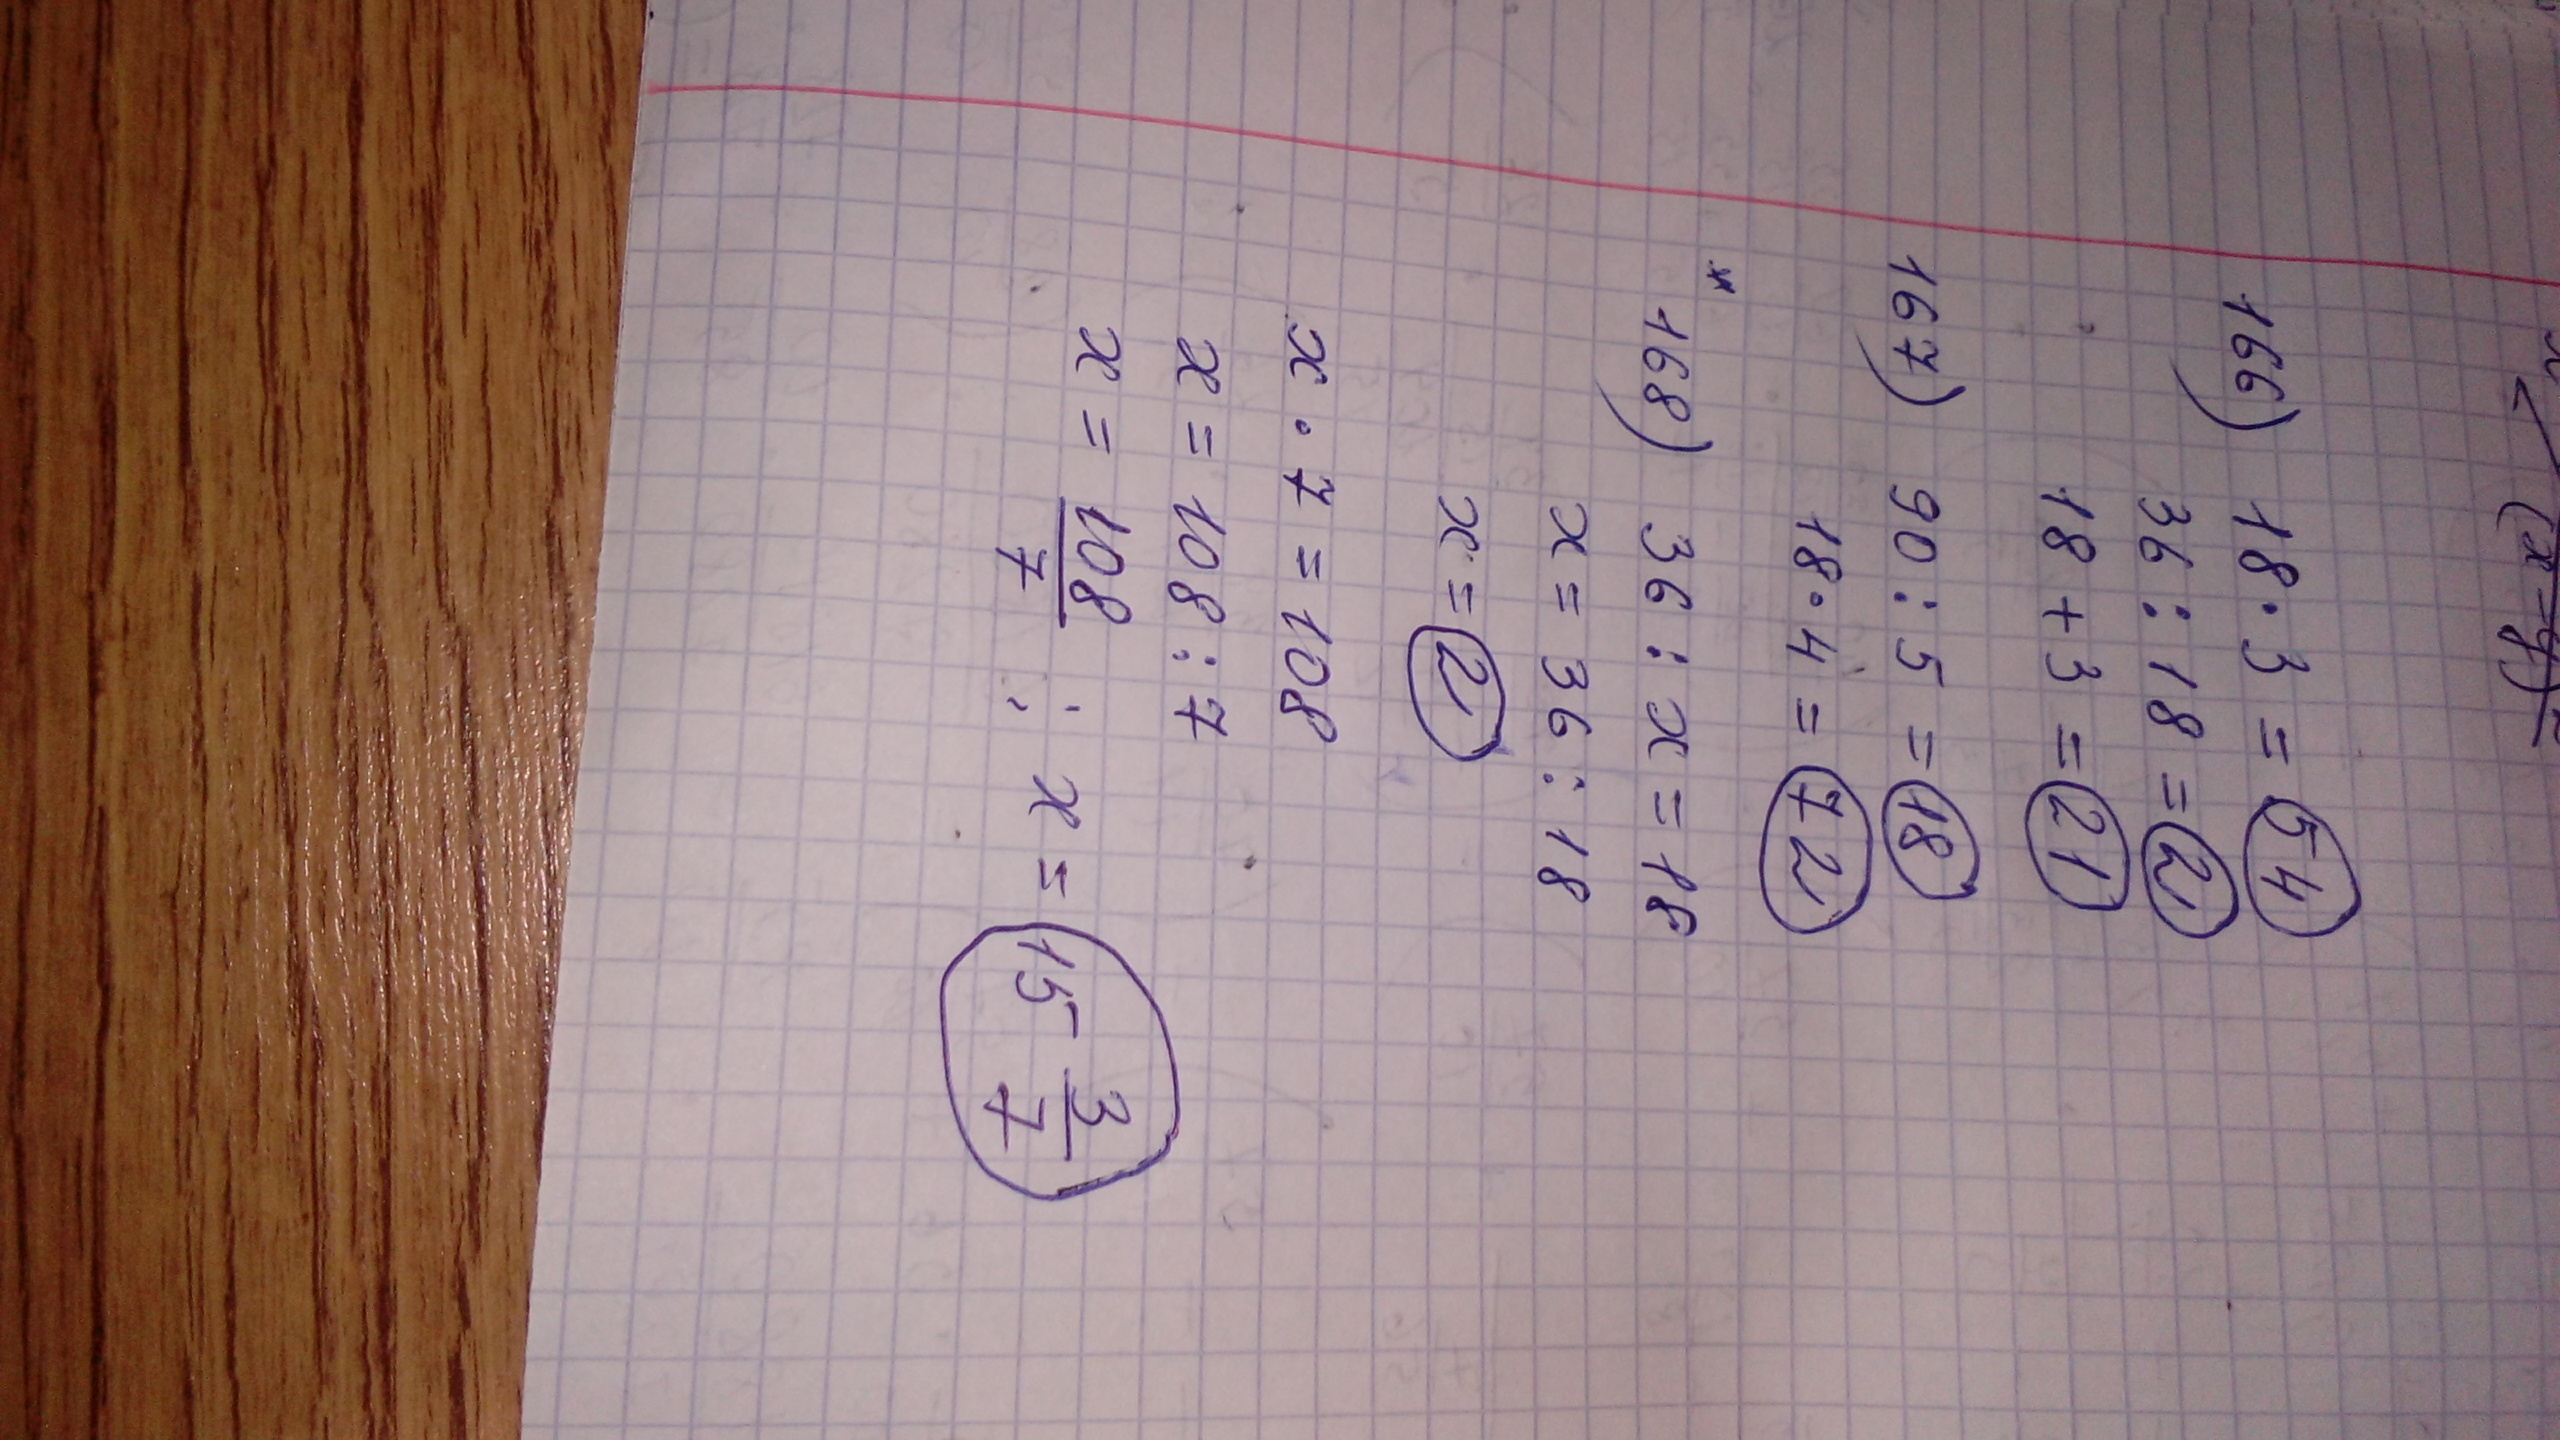 (x-y)²
166) 18·3=54
36:18=2
18+3=21
167) 90:5=18
18·4=72
*
168) 36:x=18
x=36:18
x=2
x·7=108
x=108:7
x=108/7 ; x=15 3/7